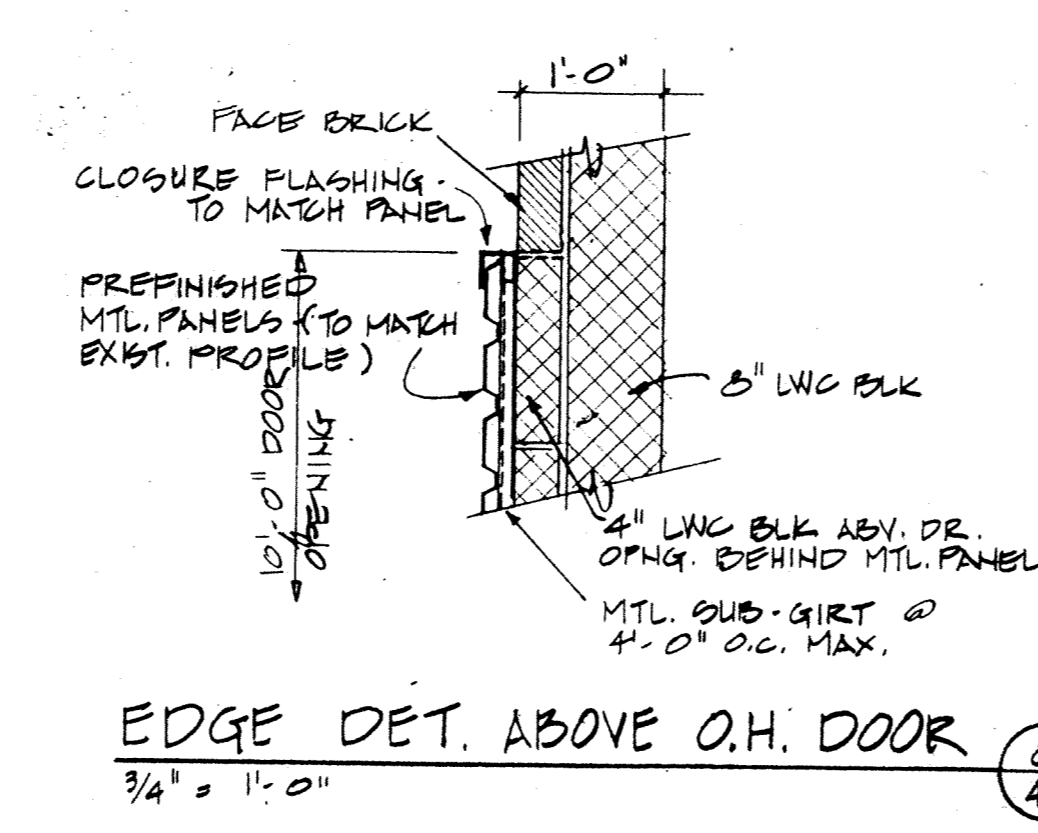 1'-0"
FACE BRICK
CLOSURE FLASHING -
TO MATCH PANEL
PREFINISHED
MTL. PANELS (TO MATCH
EXIST. PROFILE)
10'-0" DOOR
OPENING
8" LWC BLK
4" LWC BLK ABV. DR.
OPNG. BEHIND MTL. PANEL
MTL. SUB-GIRT @
4'-0" O.C. MAX.
EDGE DET. ABOVE O.H. DOOR
3/4" = 1'-0"